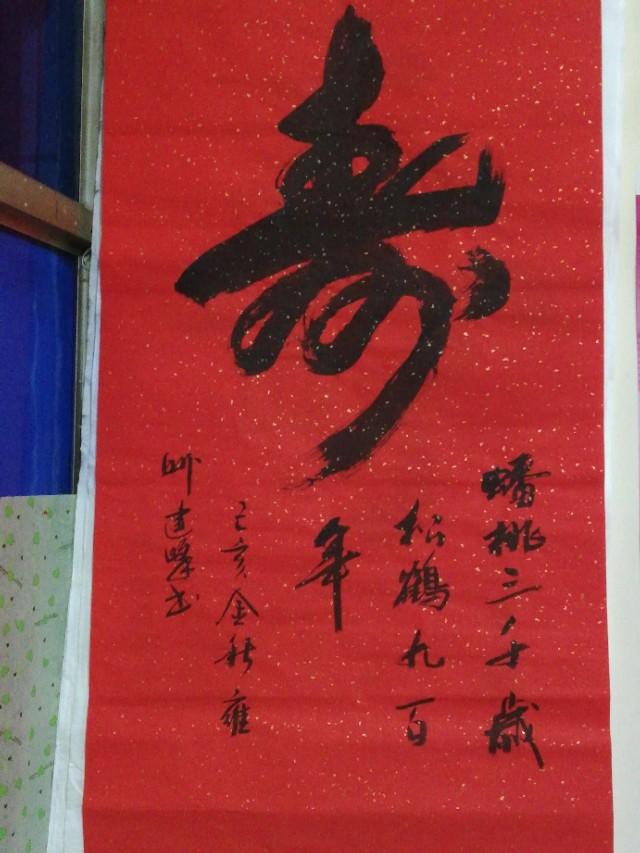 寿
蟠桃三千歲
松鶴九百
年
己亥金秋雍
州建峰书